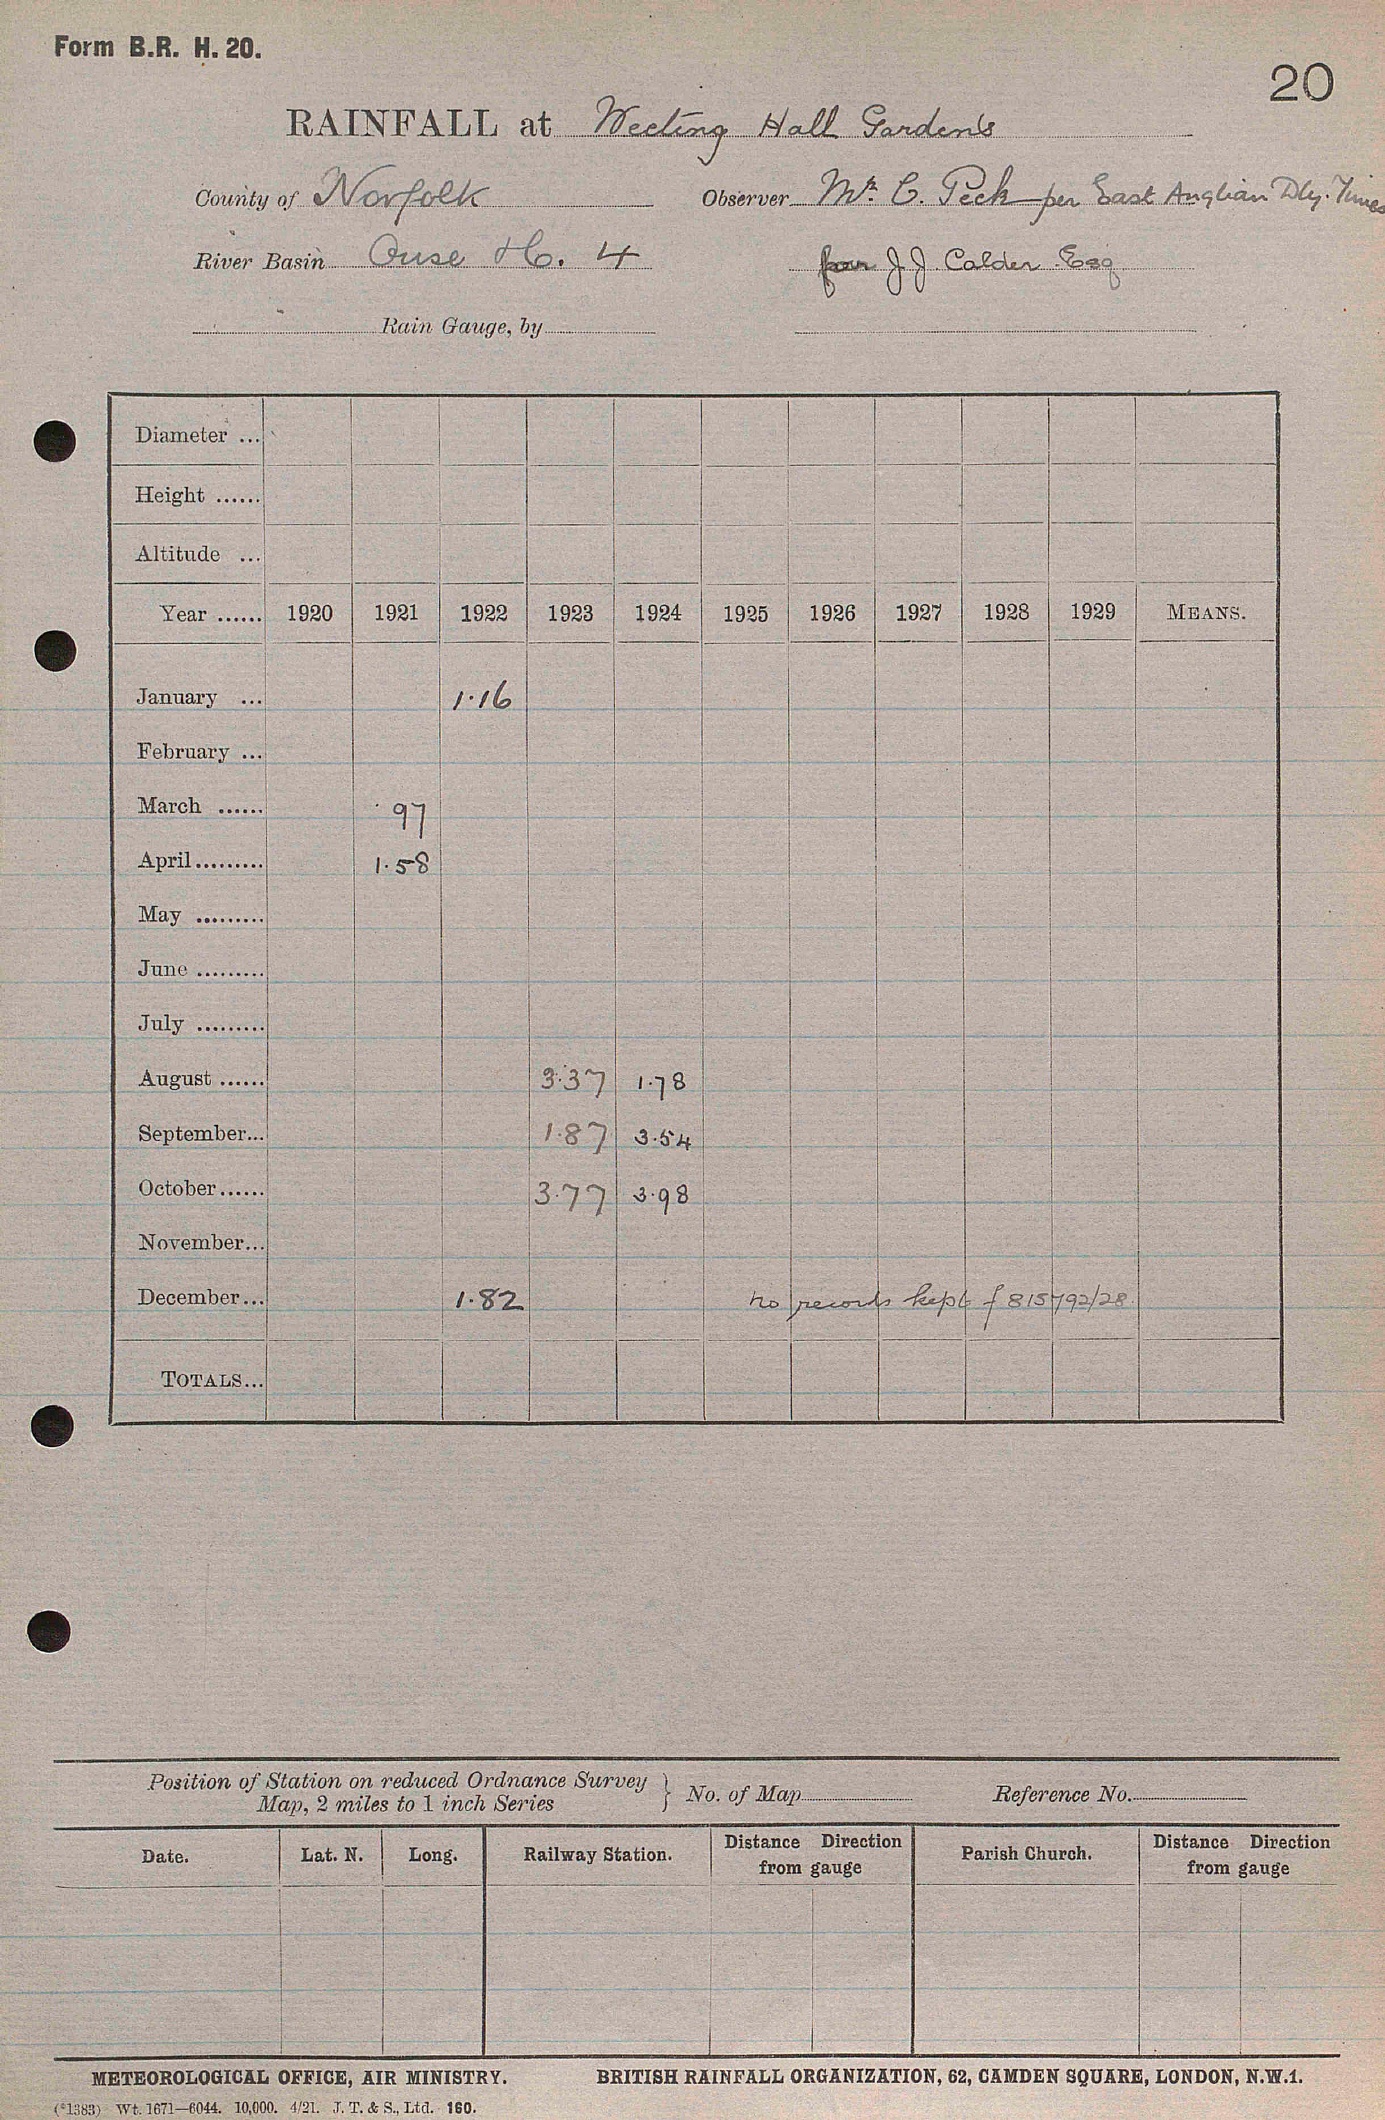 Form B.R. H. 20.
20
RAINFALL at Weeting Hall Gardens
County of Norfolk Observer Mr. C. Peck per East Anglian Dly. Times
River Basin Ouse H6. 4 for J J Calder Esq
Rain Gauge, by
Diameter ...
Height ......
Altitude ...
Year ...... 1920 1921 1922 1923 1924 1925 1926 1927 1928 1929 MEANS.
January ... 1.16
February ...
March ...... .97
April......... 1.58
May .........
June .........
July .........
August ...... 3.37 1.78
September... 1.87 3.54
October...... 3.77 3.98
November...
December... 1.82 no records kept f 815792/28
TOTALS...
Position of Station on reduced Ordnance Survey
Map, 2 miles to 1 inch Series } No. of Map Reference No.
Date. Lat. N. Long. Railway Station. Distance Direction from gauge Parish Church. Distance Direction from gauge
METEOROLOGICAL OFFICE, AIR MINISTRY. BRITISH RAINFALL ORGANIZATION, 62, CAMDEN SQUARE, LONDON, N.W.1.
(*1383) Wt. 1671—6044. 10,000. 4/21. J. T. & S., Ltd. 160.